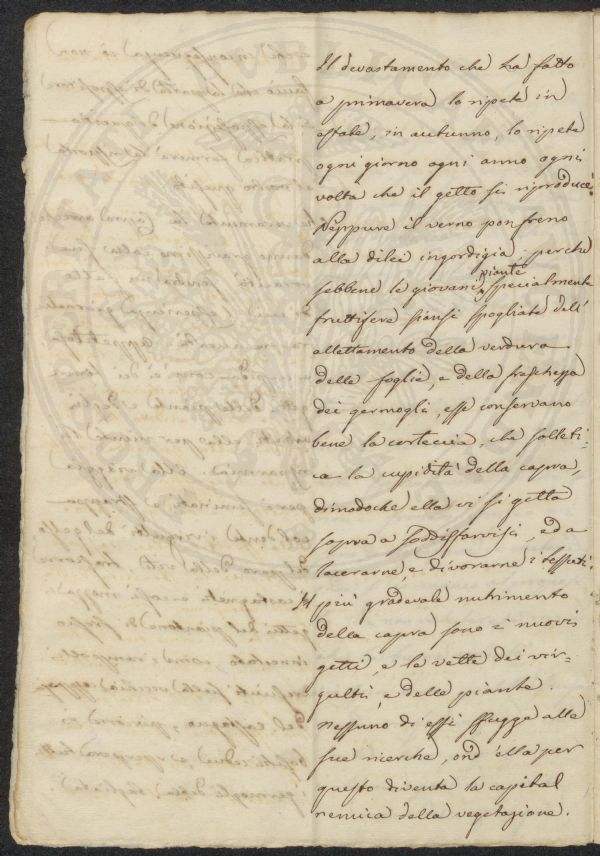 Il devastamento che ha fatto
a primavera lo ripete in
estate, in autunno, lo ripete
ogni giorno ogni anno ogni
volta che il getto si riproduce.
Neppure il verno pon freno
alla dilei ingordigia: perchè
sebbene le giovani piante specialmente
fruttifere siansi spogliate dell'
allettamento della verdura
delle foglie, e della freschezza
dei germogli, esse conservano
bene la corteccia, che solleti-
ca la cupidità della capra,
dimodochè ella vi si getta
sopra a soddisfarvisi, ed a
lacerarne, e divorarne i
Il più gradevole nutrimento
della capra sono i nuovi
getti, e le vette dei vir-
gulti, e delle piante.
Nessuno di essi sfugge alle
sue ricerche, ond'ella per
questo diventa la capital
nemica della vegetazione.